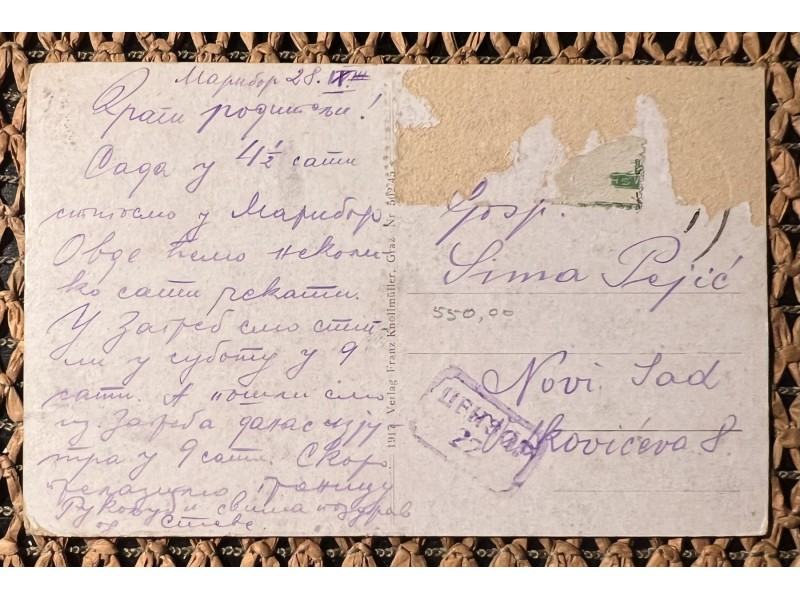 Марибор 28.
Драги родитељи!
Сада у 4½ сати
стигосмо у Марибор
Овде ћемо неколи
ко сати чекати.
У Загреб смо стиг-
ли у суботу у 9
сати. А пошли смо
из Загреба данас изју
тра у 9 сати. Скоро
прелазимо границу
Рукољуб и свима поздрав
од Стеве.
1917 Verlag Franz Knollmüller, Graz Nr.
Gosp.
Sima Pejić
550,00
Novi Sad
8